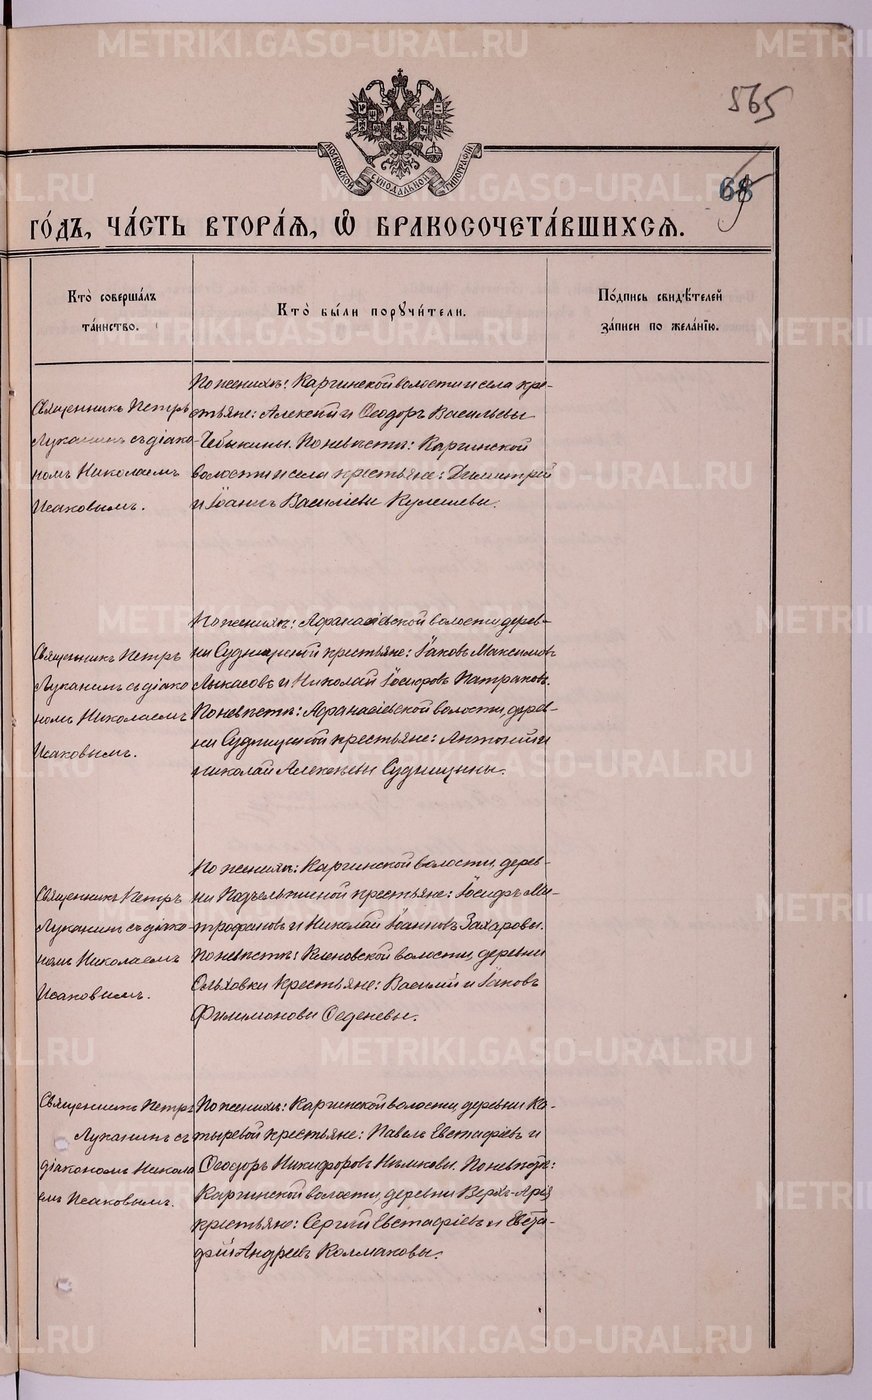 METRIKI.GASO-URAL.RU
565
МОСКОВСКОЙ СѴНОДАЛЬНОЙ ТИПОГРАФІИ
68
ГО́ДЪ, ЧА́СТЬ ВТОРА́Я, Ѡ҆ БРАКОСОЧЕТА́ВШИХСЯ.
Кто̀ соверша́лъ
та́инство.
Кто̀ бы́ли поручи́тели.
По́дпись свидѣ́телей
за́писи по жела́нїю.
Священникъ Петръ
Луканинъ съ діако-
номъ Николаемъ
Исаковымъ.
По женихѣ: Каргинской волости и села кре-
стьяне: Алексѣй и Ѳеодоръ Васильевы
Чебыкины. По невѣстѣ: Каргинской
волости и села крестьяне: Димитрій
и Іоаннъ Василіевы Кулешевы.
Священникъ Петръ
Луканинъ съ діако
номъ Николаемъ
Исаковымъ.
По женихѣ: Афанасіевской волости, дерев-
ни Судницыной крестьяне: Іаковъ Максимовъ
Лыкасовъ и Николай Іосифовъ Патраковъ.
По невѣстѣ: Афанасіевской волости, дерев-
ни Судницыной крестьяне: Антоній и
Николай Алексѣевы Судницыны.
Священникъ Петръ
Луканинъ съ діако-
номъ Николаемъ
Исаковымъ.
По женихѣ: Каргинской волости, дерев-
ни Подъельжиной крестьяне: Іосифъ Ми-
трофановъ и Николай Іоанновъ Захаровы.
По невѣстѣ: Кленовской волости, деревни
Ольховки крестьяне: Василій и Іаковъ
Филимоновы Оеденевы.
Священникъ Петръ
Луканинъ съ
діакономъ Никола
емъ Исаковымъ.
По женихѣ: Каргинской волости, деревни Ка-
тыревой крестьяне: Павелъ Евстафіевъ и
Ѳеодоръ Никифоровъ. По невѣстѣ:
Каргинской волости, деревни Верхъ-Арія
крестьяне: Сергій Евстафіевъ и Евста-
фій Андреевъ Колмаковы.